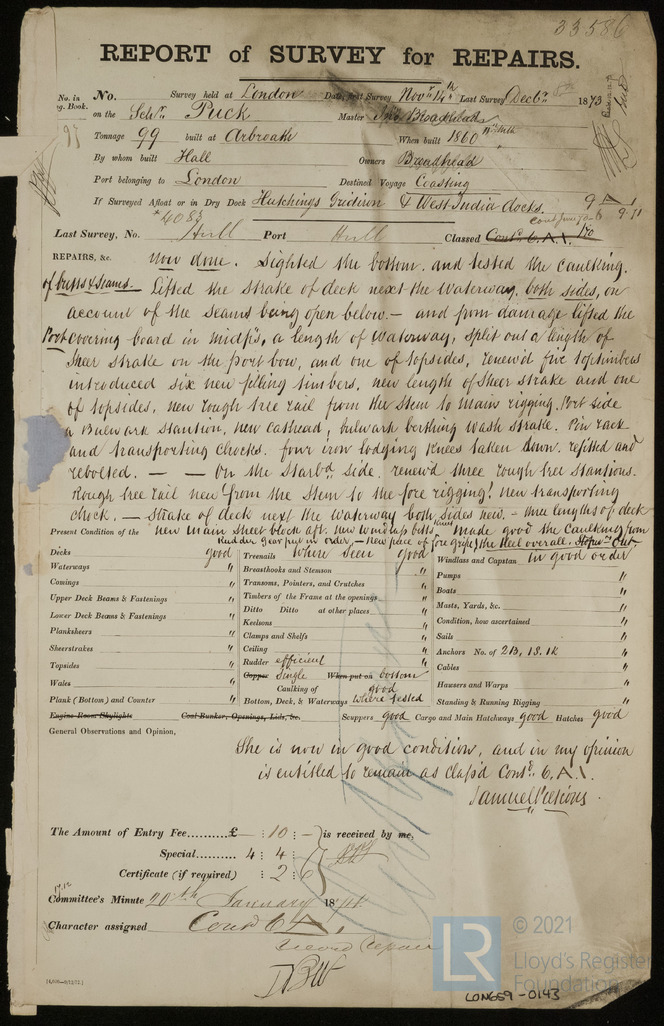 33586
REPORT of SURVEY for REPAIRS.
No. in Reg. Book. No. Survey held at London Date, first Survey Novr 14th Last Survey Decbr 1873
97 on the Schr Puck Master
Tonnage 99 built at Arbroath When built 1860
By whom built Hall Owners Broadhead
Port belonging to London Destined Voyage Coasting
If Surveyed Afloat or in Dry Dock Hutchings Gridiron & West India docks.
*6083
Last Survey, No. Hull Port Hull Classed Contd 6. A.1.
REPAIRS, &c. now done. Sighted the bottom. and tested the caulking.
of butts & seams. Lifted the strake of deck next the Waterway, both sides, on
account of the seams being open below. — and from damage lifted the
Port covering board in midps, a length of waterway, split out a length of
sheer strake on the port bow, and one of topsides, renew'd five toptimbers
introduced six new filling timbers, new length of sheer strake and one
of topsides, new rough tree rail from the stem to main rigging. Port side
a Bulwark stantion, new cathead, bulwark berthing wash strake. Pin rack
and transporting chocks. four iron lodging knees taken down. refitted and
rebolted. — — On the Starbd side. renew'd three rough tree stantions.
Rough tree rail new from the stem to the fore rigging! new transporting
chock. — strake of deck next the waterway both sides new. — three lengths of deck
new main sheet block aft. new windlass bitts made good the caulking from
Rudder gear put in order, — new piece of fore gripe / the Keel overall.
Present Condition of the
Decks good Treenails where seen good Windlass and Capstan in good order
Waterways " Breasthooks and Stemson " Pumps "
Comings " Transoms, Pointers, and Crutches " Boats "
Upper Deck Beams & Fastenings " Timbers of the Frame at the openings " Masts, Yards, &c. "
Lower Deck Beams & Fastenings " Ditto Ditto at other places " Condition, how ascertained "
Planksheers " Keelsons " Sails "
Sheerstrakes " Clamps and Shelfs " Anchors No. of 2B, 1S. 1K "
Topsides " Ceiling " Cables "
Wales " Rudder efficient Hausers and Warps "
Plank (Bottom) and Counter " Copper Single When put on bottom Standing & Running Rigging "
Caulking of good
Bottom, Deck, & Waterways where tested
Engine Room Skylights Coal Bunker, Openings, Lids, &c. Scuppers good Cargo and Main Hatchways good Hatches good
General Observations and Opinion,
She is now in good condition, and in my opinion
is entitled to remain as class'd Contd 6. A.1.
The Amount of Entry Fee..........£ — : 10 : — is received by me,
Special.......... 4 : 4 :
Certificate (if required) : 2 : 6
Committee's Minute 20th January 1874
Character assigned Contd 6 A 1
Record Repair
© 2021
Lloyd's Register
Foundation
LR
LON659-0143